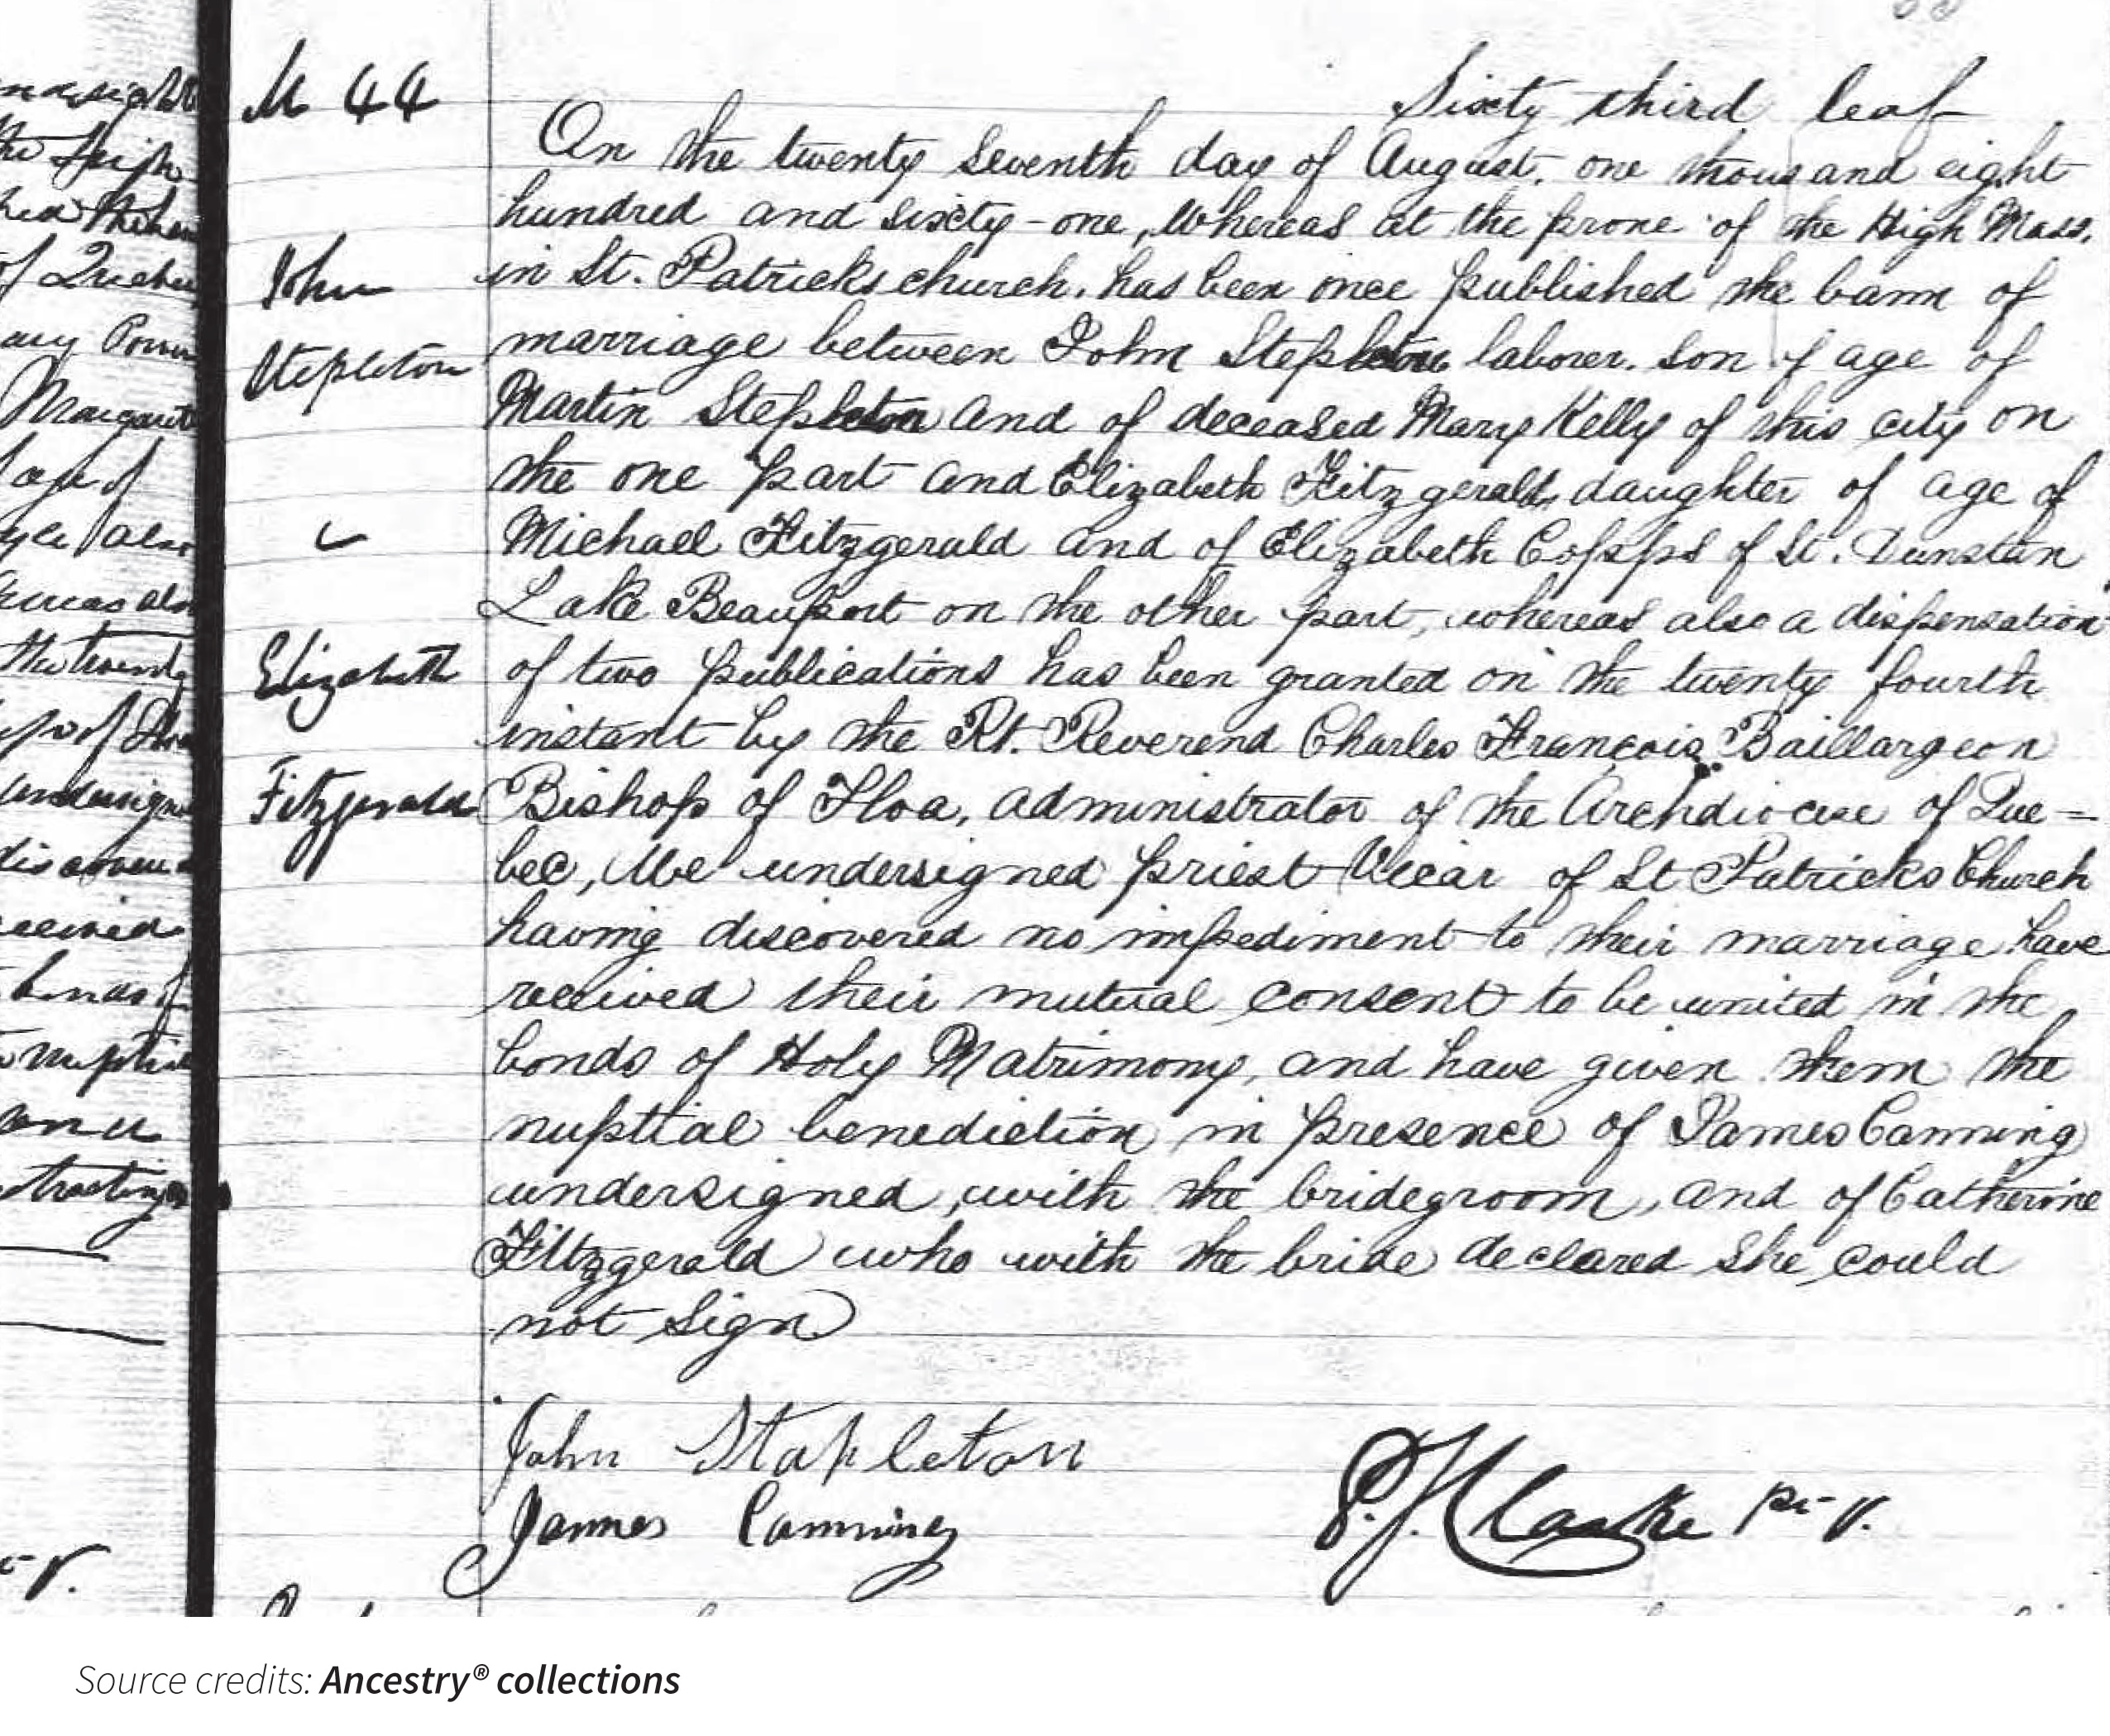 M 44
Sixty third leaf
On the twenty Seventh day of August, one thousand eight
hundred and sixty-one, Whereas at the prone of the High Mass,
John
in St. Patricks church, has been once published the bann of
Stepleton
marriage between John Stepleton laborer, son of age of
Martin Stepleton and of deceased Mary Kelly of this city on
the one part and Elizabeth Fitzgerald, daughter of age of
Michael Fitzgerald and of Elizabeth Copps of St. Dunstan
Lake Beauport on the other part, whereas also a dispensation
Elizabeth
of two publications has been granted on the twenty fourth
instant by the Rt. Reverend Charles François Baillargeon
Fitzgerald
Bishop of Tloa, administrator of the Archdiocese of Que=
bec, We undersigned priest Vicar of St Patricks Church
having discovered no impediment to their marriage have
received their mutual consent to be united in the
bonds of Holy Matrimony, and have given them the
nuptial benediction in presence of James Canning
undersigned, with the bridegroom, and of Catherine
Fitzgerald who with the bride declared she could
not sign
John Stapleton
James Canning
P.J. Clarke pr-v.
Source credits: Ancestry® collections